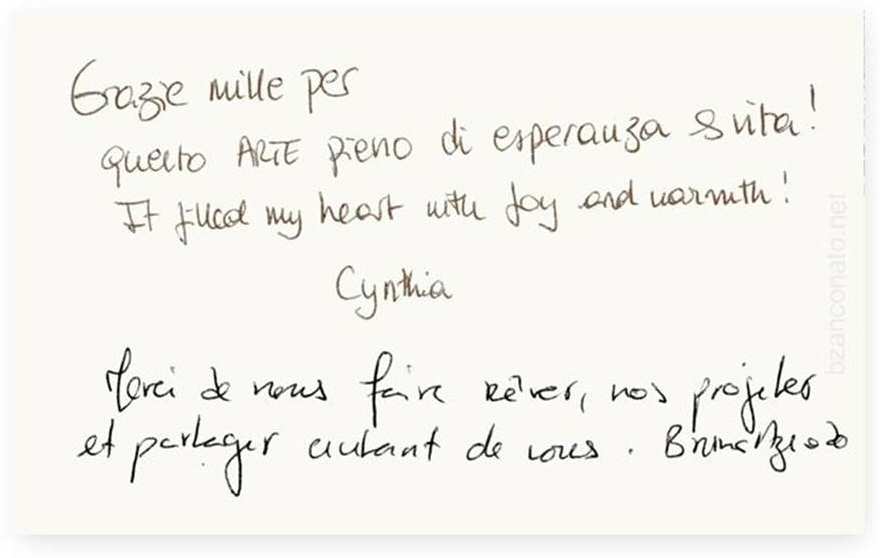 Grazie mille per
questo ARTE pieno di esperanza & vita!
It filled my heart with Joy and warmth!
Cynthia
Merci de nous faire rêver, nos projeter
et partager autant de vous.
bzanconato.net